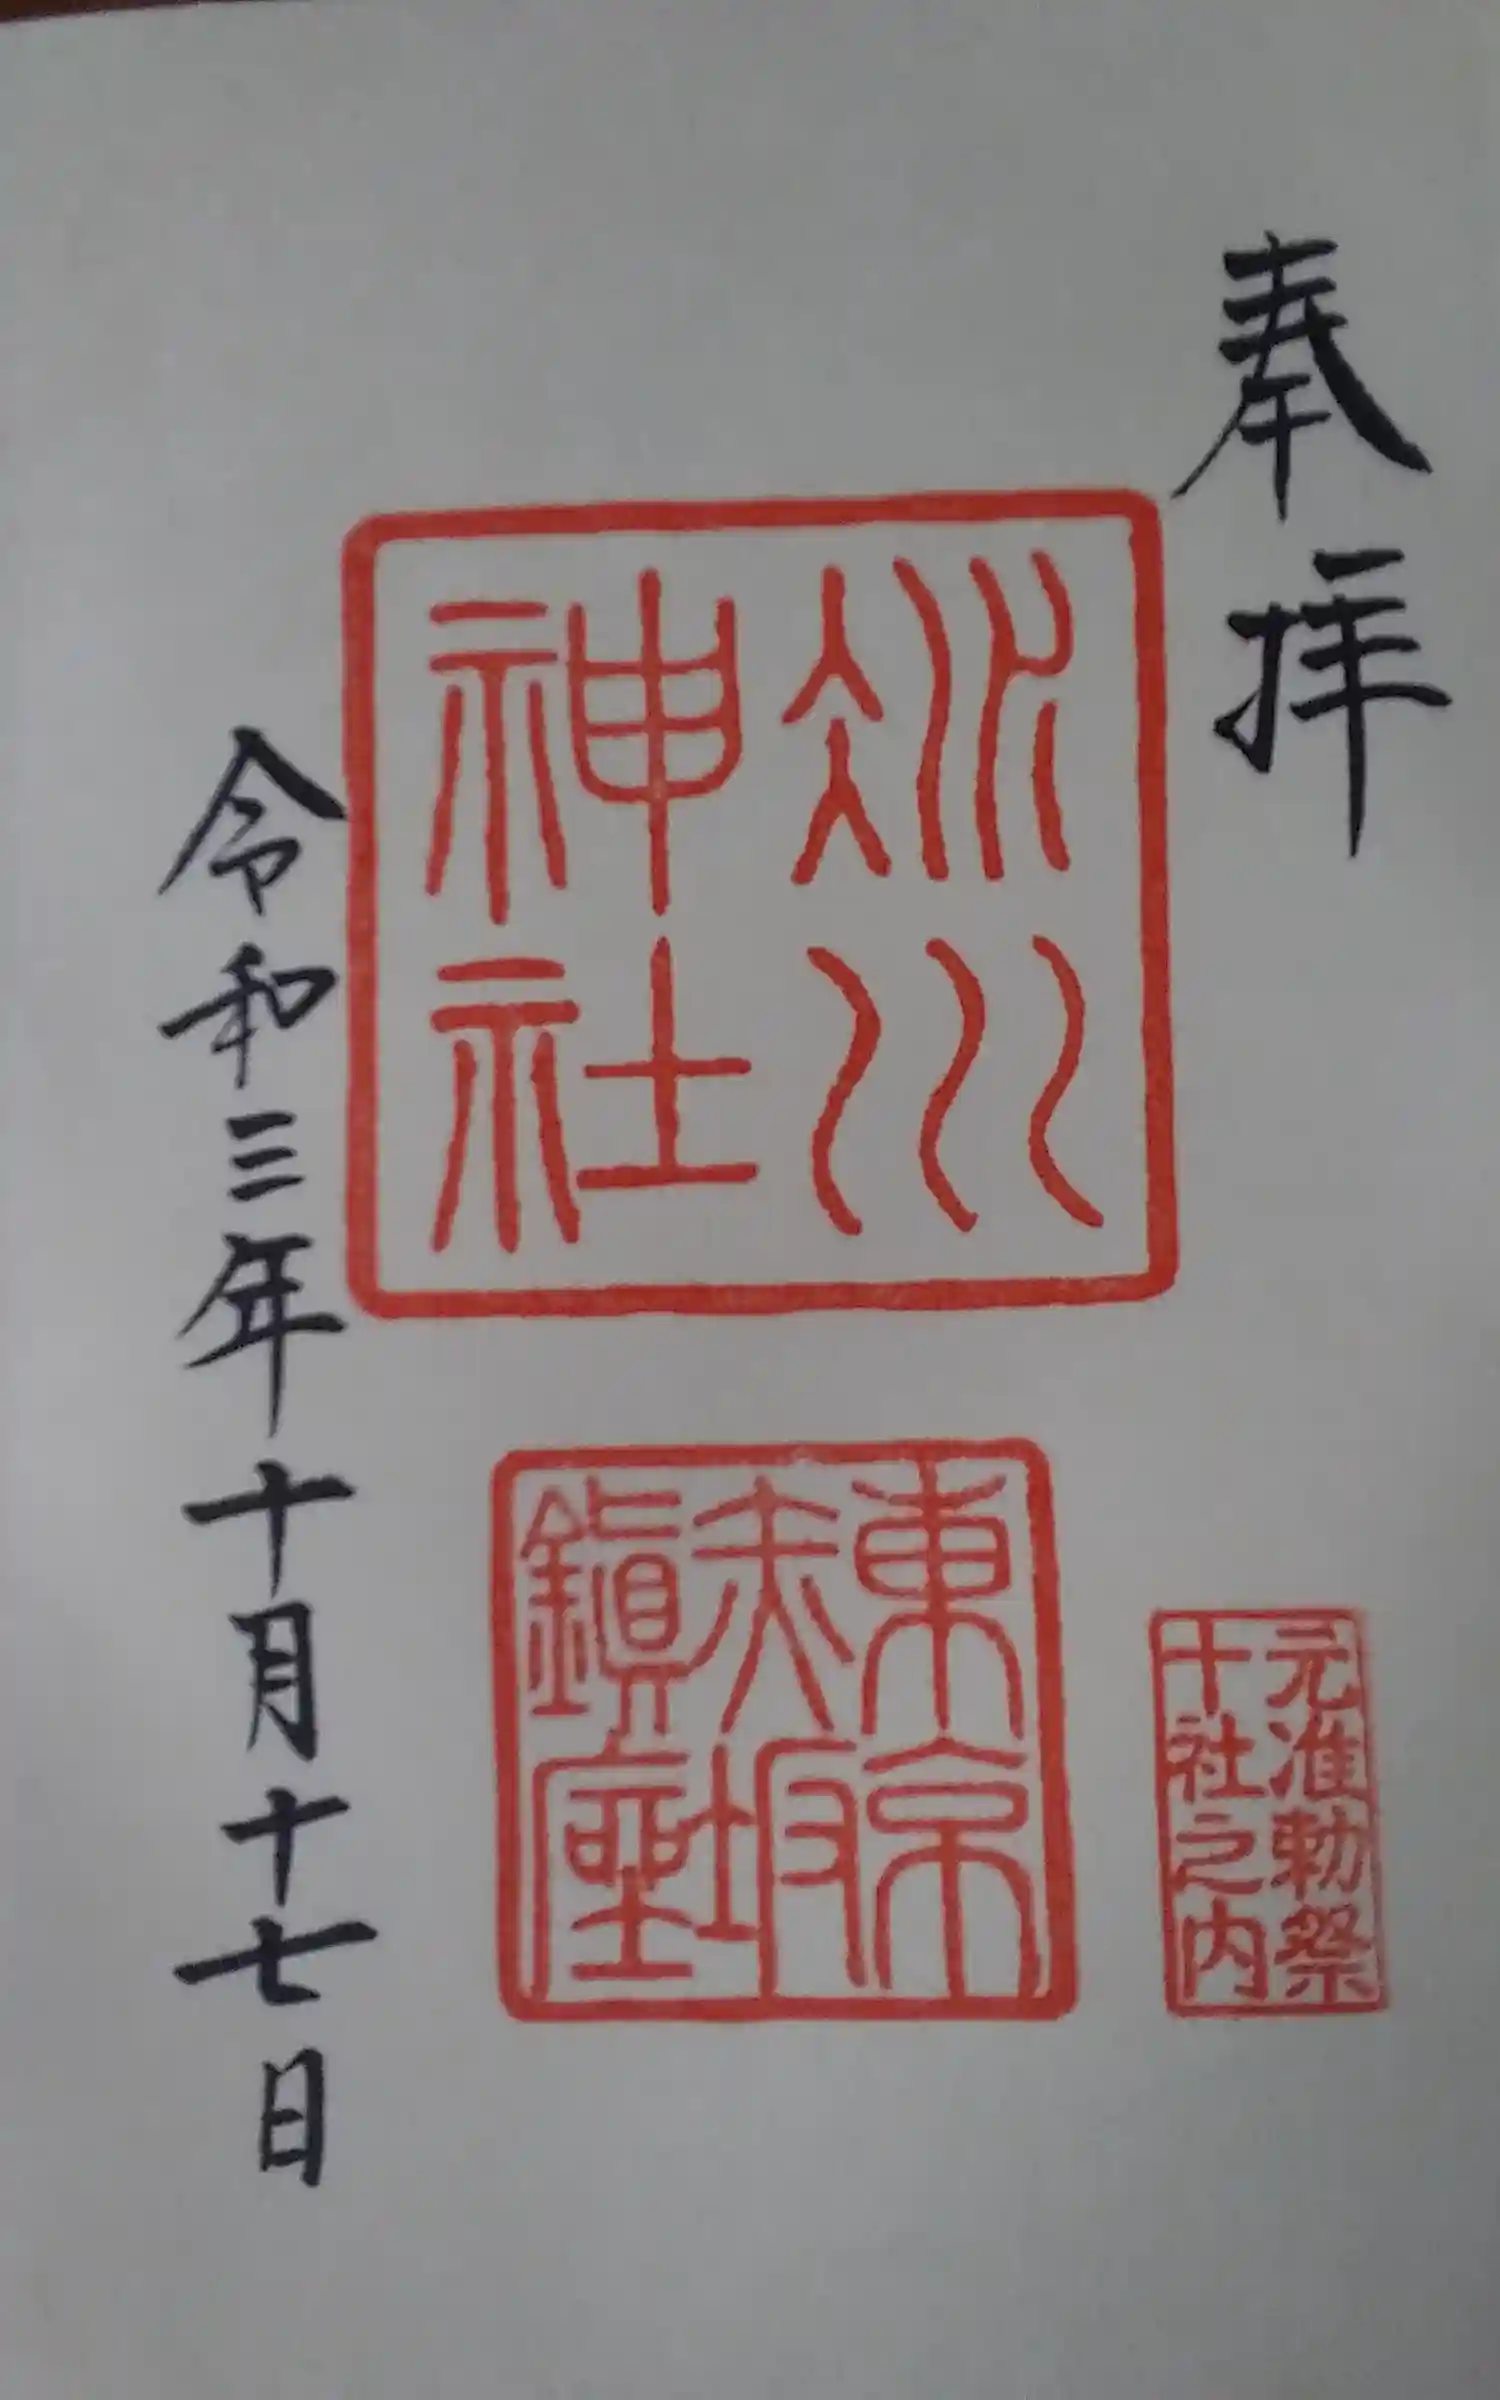 奉拝
冰川
神社
東京
赤坂
鎭座
元准勅祭
十社之内
令和三年十月十七日